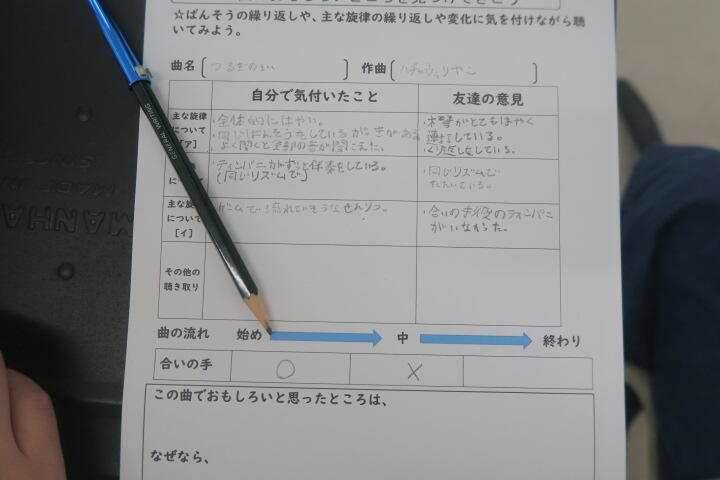 ☆ばんそうの繰り返しや、主な旋律の繰り返しや変化に気を付けながら聴
いてみよう。
曲名 つるぎのまい 作曲 ハチャトゥリヤン
自分で気付いたこと 友達の意見
主な旋律
について
[ア]
・全体的にはやい。
・同じばんそうをしている がっきがある
・よく聞くと全部の音が聞こえた。
・木琴がとてもはやく
連打している。
・くり返しをしている。
に
・ティンパニがずっと伴奏をしている。
(同じリズムで)
・同じリズムで
たたいている。
主な旋
について
[イ]
・合いの手役のティンパニ
がいなかった。
その他の
聴き取り
曲の流れ 始め 中 終わり
合いの手 ○ ×
この曲でおもしろいと思ったところは、
なぜなら、
GENERAL WRITING
MANHA